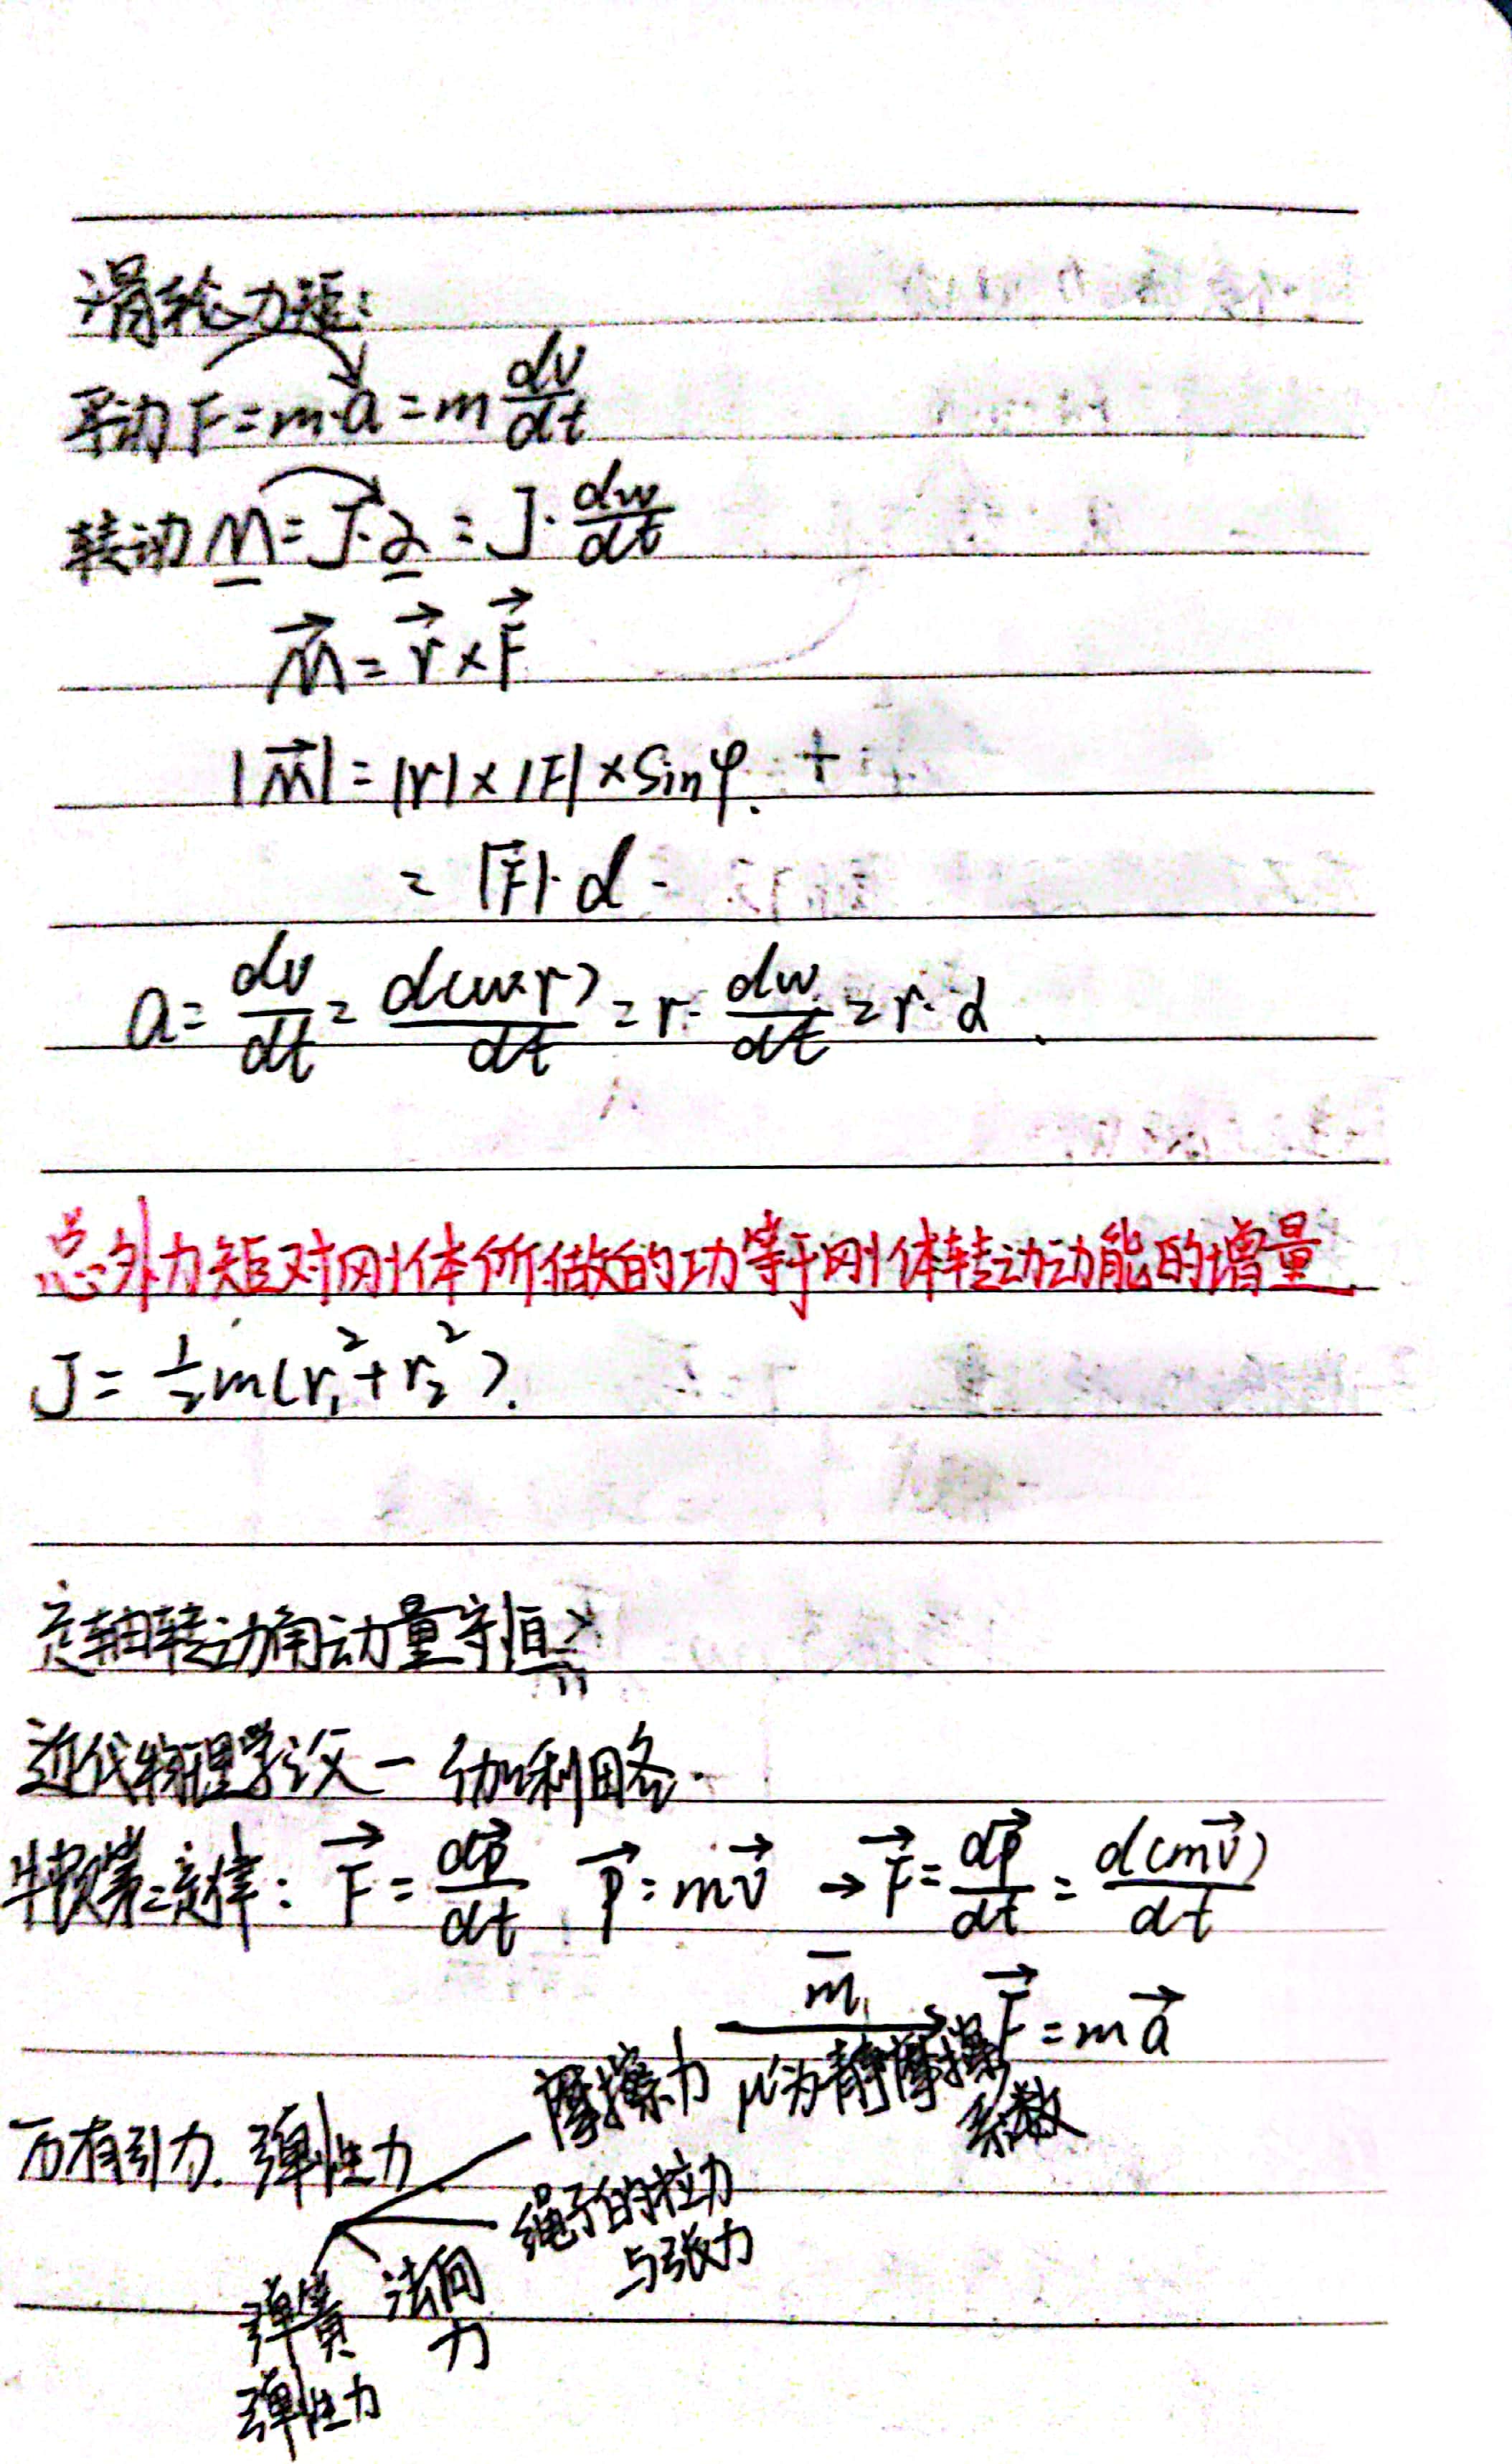 滑轮力矩:
平动 F=m·a=m dv/dt
转动 M=J·α=J·dw/dt
M⃗=r⃗×F⃗
|M⃗|=|r|×|F|×sinφ.
=|F⃗|·d
a=dv/dt=d(w·r)/dt=r·dw/dt=r·α
总外力矩对刚体所做的功等于刚体转动动能的增量
J=½m(r₁²+r₂²).
定轴转动角动量守恒
近代物理学之父—伽利略.
牛顿第二定律: F⃗=dp⃗/dt p⃗=mv⃗ →F⃗=dp⃗/dt=d(mv⃗)/dt
m F⃗=ma⃗
摩擦力 μ为静摩擦系数
万有引力. 弹性力
绳子的拉力
与张力
法向
力
弹簧
弹性力